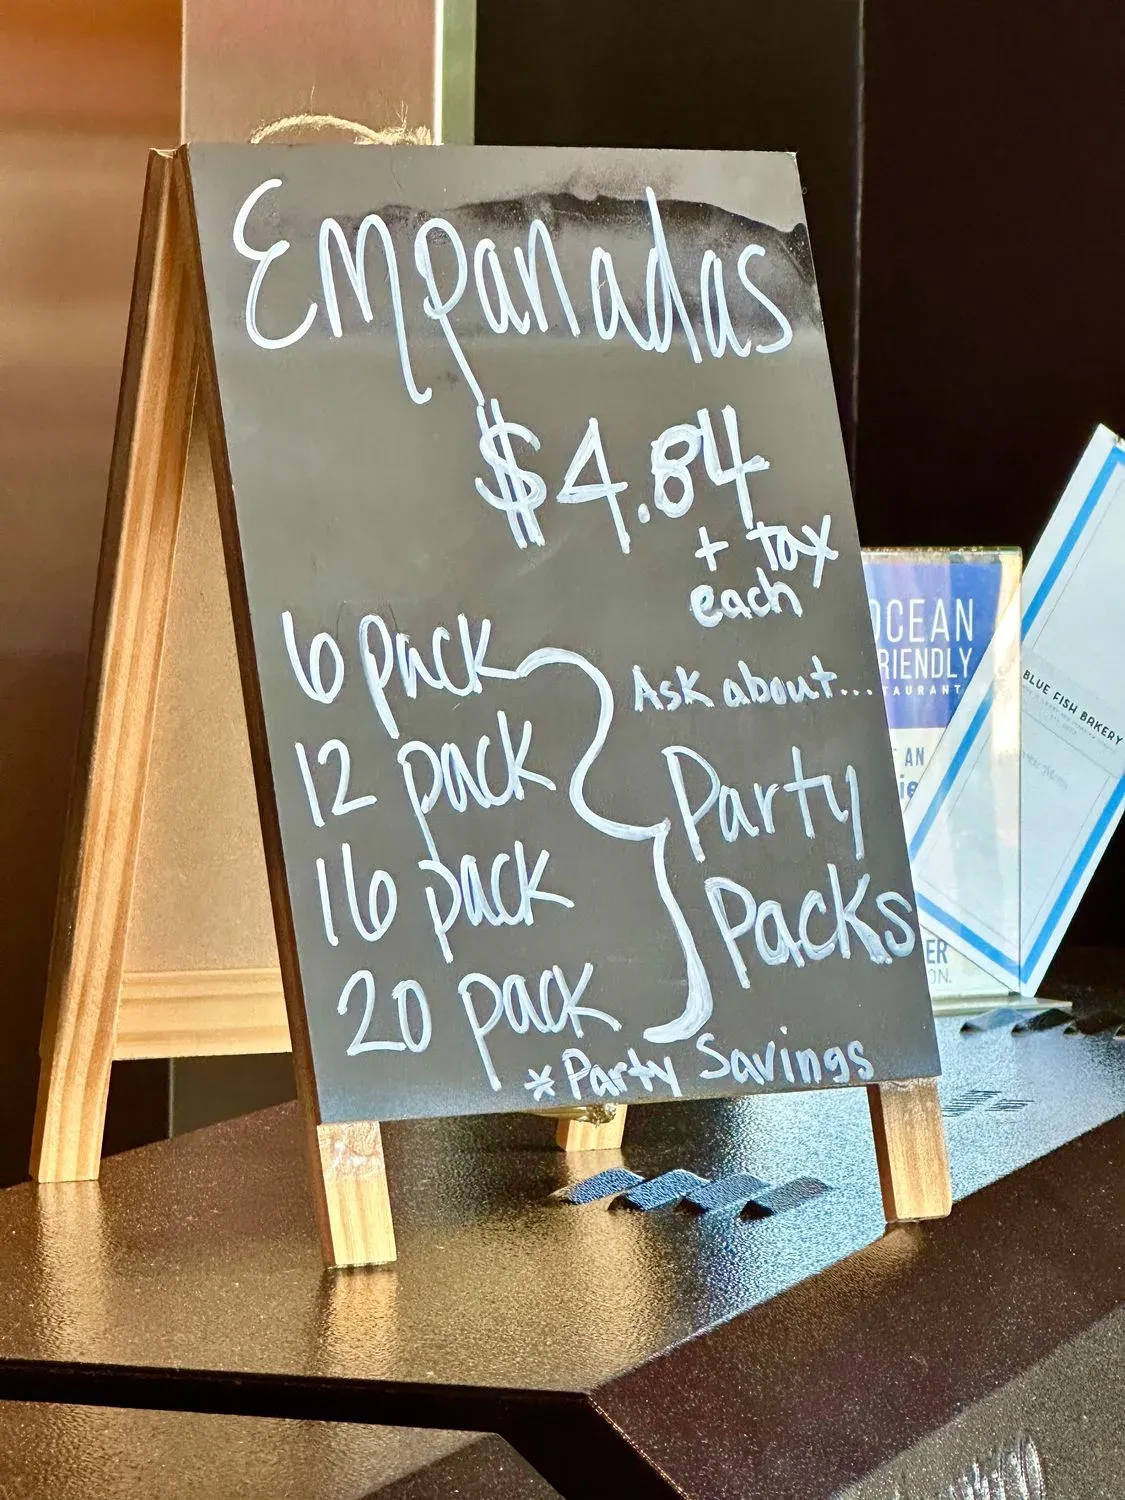 Empanadas
$4.84
+ tax
each
6 pack
12 pack
16 pack
20 pack
Ask about...
Party
Packs
*Party Savings
OCEAN
FRIENDLY
AN
ER
ON.
BLUE FISH BAKERY